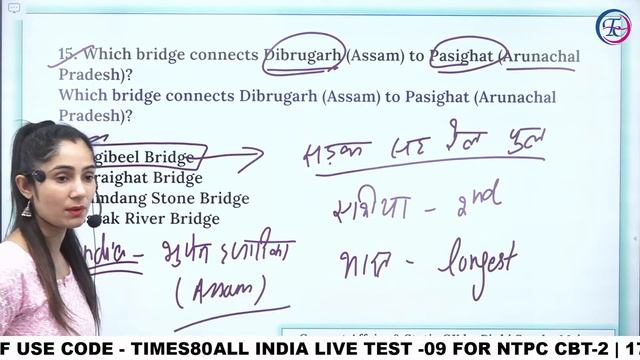 15. Which bridge connects Dibrugarh (Assam) to Pasighat (Arunachal
Pradesh)?
Which bridge connects Dibrugarh (Assam) to Pasighat (Arunachal
Pradesh)?
gibeel Bridge
raighat Bridge
mdang Stone Bridge
ak River Bridge
सड़क सह रेल पुल
एशिया - 2nd
भारत - longest
India - भूपेन हजारिका
(Assam)
F USE CODE - TIMES80ALL INDIA LIVE TEST -09 FOR NTPC CBT-2 | 1